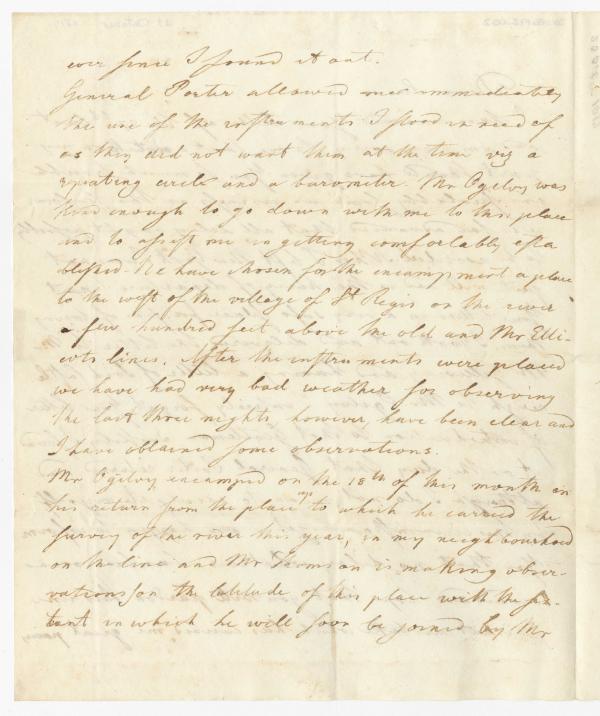 ever since I found it out.
General Porter allowed me immediately
the use of the instruments I stood in need of
as they did not want them at the time viz a
repeating circle and a barometer. Mr Ogilvy was
kind enough to go down with me to this place
and to assist me in getting comfortably esta
blished. We have chosen for the encampment a place
to the west of the village of St Regis on the river
a few hundred feet above the old and Mr Elli-
cots lines. After the instruments were placed
we have had very bad weather for observing
the last three nights however, have been clear and
I have obtained some observations.
Mr Ogilvy encamped on the 18th of this month in
his return from the place to which he carried the
survey of the river this year, in my neighbourhood
on the line and Mr Thomson is making obser-
vations for the latitude of this place with the sex-
tant in which he will soon be joined by Mr